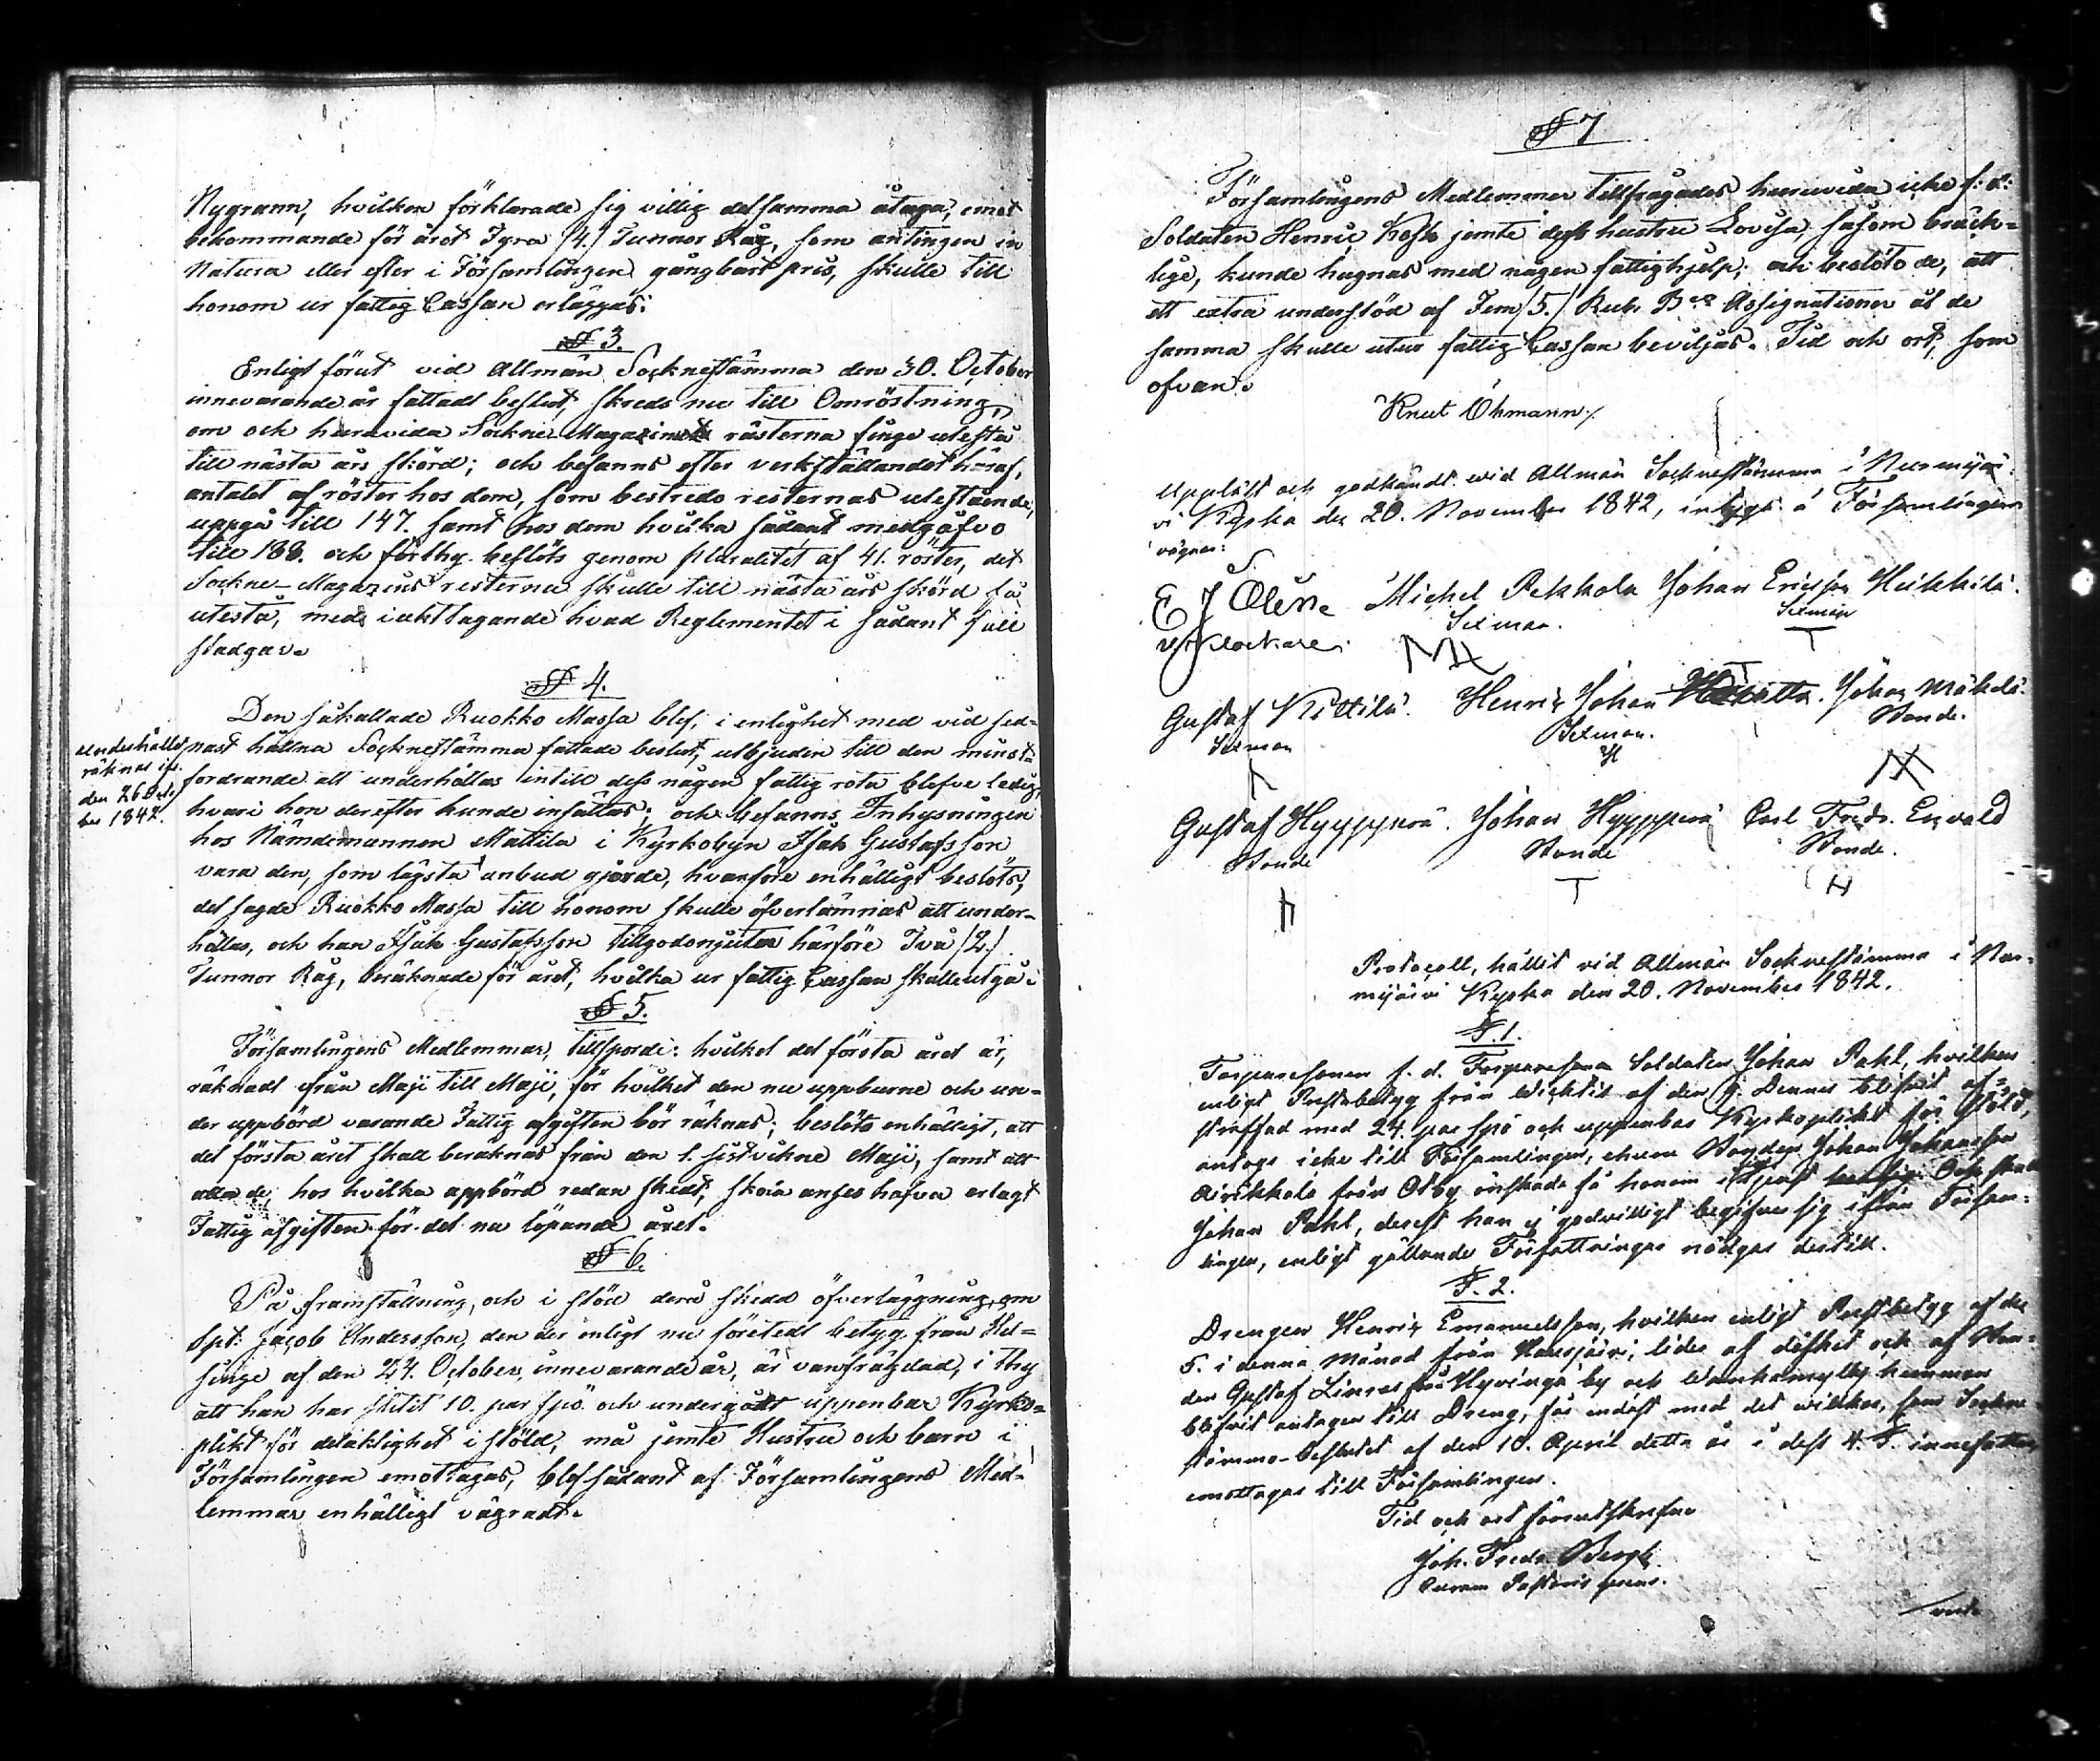 Nygrann, hvilken förklarade sig villig detsamma åtaga, emot
bekommande för året Fyra /4./ Tunnor Råg, som antingen in
Natura eller efter i Församlingen gångbart pris, skulle till
honom ur fattig Cassan erläggas.
§ 3.
Enligt förut vid Allmän Socknestämma den 30. October
innevarande år fattadt beslut, skreds nu till Omröstning,
om och huruvida Sockne Magazinets resterna finge utestå
till nästa års skörd; och befanns efter verkställandet häraf,
antalet af röster hos dem, som bestredo resternas utestående,
uppgå till 147. samt hos dem hvilka sådant medgåfvo
till 188. och förthy beslöts genom pluralitet af 41. röster, det
Sockne-Magazins resterna skulle till nästa års skörd få
utestå, med iakttagande hvad Reglementet i sådant fall
stadgar.
§ 4.
Den såkallade Ruokko Massa blef, i enlighet med vid sed-
nast hållna Socknestämma fattade beslut, utbjuden till den minst
fordrande att underhållas intill dess någon fattig rota blefve ledig,
hvari hon derefter kunde insättas; och befanns Inhysningen
hos Nämdemannen Mattila i Kyrkobyn Isak Gustafsson
vara den, som lägsta anbud gjorde, hvarföre enhälligt beslöts,
det sagde Ruokko Massa till honom skulle öfverlämnas att under-
hållas, och han Isak Gustafsson tillgodonjuta härföre Två /2./
Tunnor Råg, beräknade för året, hvilka ur fattig Cassan skulle utgå.
Underhållet
räknas ifr.
den 26 Octo
ber 1842.
§ 5.
Församlingens Medlemmar, tillsporde: hvilket det första året är,
räknadt från Maji till Maji, för hvilket den nu uppburne och un-
der uppbörd varande Fattig afgiften bör räknas; beslöto enhälligt, att
det första året skall beräknas från den 1. sistvikne Maji, samt att
alla de, hos hvilka uppbörd redan skedt, skola anses hafva erlagt
Fattig afgiften för det nu löpande året.
§ 6.
På framställning, och i stöd derå skedd öfverläggning, om
Spt. Jacob Andersson, den der enligt nu företedt betyg från Hel-
singe af den 24. October innevarande år, är vanfrägdad, i thy
att han har slitit 10. par spö och undergått uppenbar Kyrko-
plikt för delaktighet i stöld, må jemte Hustru och barn i
Församlingen emottagas, blef sådant af Församlingens Med-
lemmar enhälligt vägradt.
§ 7
Församlingens Medlemmar tillfrågades huruvida icke f. d.
Soldaten Henric Kosk jemte dess hustru Lovisa, såsom bräck-
lige, kunde hugnas med någon fattighjelp; och beslöto de, att
ett extra understöd af Fem /5./ Rub. Bco Assignationer åt de
samma skulle utur fattig Cassan beviljas. Tid och ort, som
ofvan.
Knut Öhmann
Uppläst och godkändt vid Allmän Sockenstämma i Nurmijär-
vi Kyrka den 20. November 1842, intyga å Församlingens
vägnar:
E J Olene Michel Pekkola Johan Ericsson Heikkilä.
v. Klockare. Sexman. Sexman
Gustaf Kittilä. Henric Johan Johan Mäkelä.
Sexman Sexman. Bonde.
Gustaf Hyyppärä. Johan Hyyppärä Carl Fredr. Envald
Bonde Bonde Bonde.
Protocoll, hållit vid Allmän Sockenstämma i Nur-
mijärvi Kyrka den 20. November 1842.
§. 1.
Torparesonen f. d. Torparesonen Soldaten Johan Pahl, hvilken
enligt Prestabetyg från Wichtis af den 9. Dennes blifvit af-
straffad med 24. par spö och uppenbar Kyrkoplikt för stöld,
antogs icke till Församlingen, ehuru Bonden Johan Johansson
Airikkala från Otby önskade få honom Och skall
Johan Pahl, derest han ej godvilligt begifver sig ifrån Försam-
lingen, enligt gällande Författningar nödgas dertill.
§. 2.
Drengen Henric Emanuelsson, hvilken enligt Prestbetyg af den
5. i denna Månad från Hausjärvi, lider af döfhet och af Bon-
den Gustaf Linros från Hyvingä by och Wanhamylly hemman
blifvit antagen till Dreng, får endast med det villkor, som Sockne-
stämmo-beslutet af den 10. April detta år i dess 4. §. innefattar,
emottagas till Församlingen.
Tid och ort förutskrifne
Joh. Fredr. Bergh.
Curam Pastoris gerens.